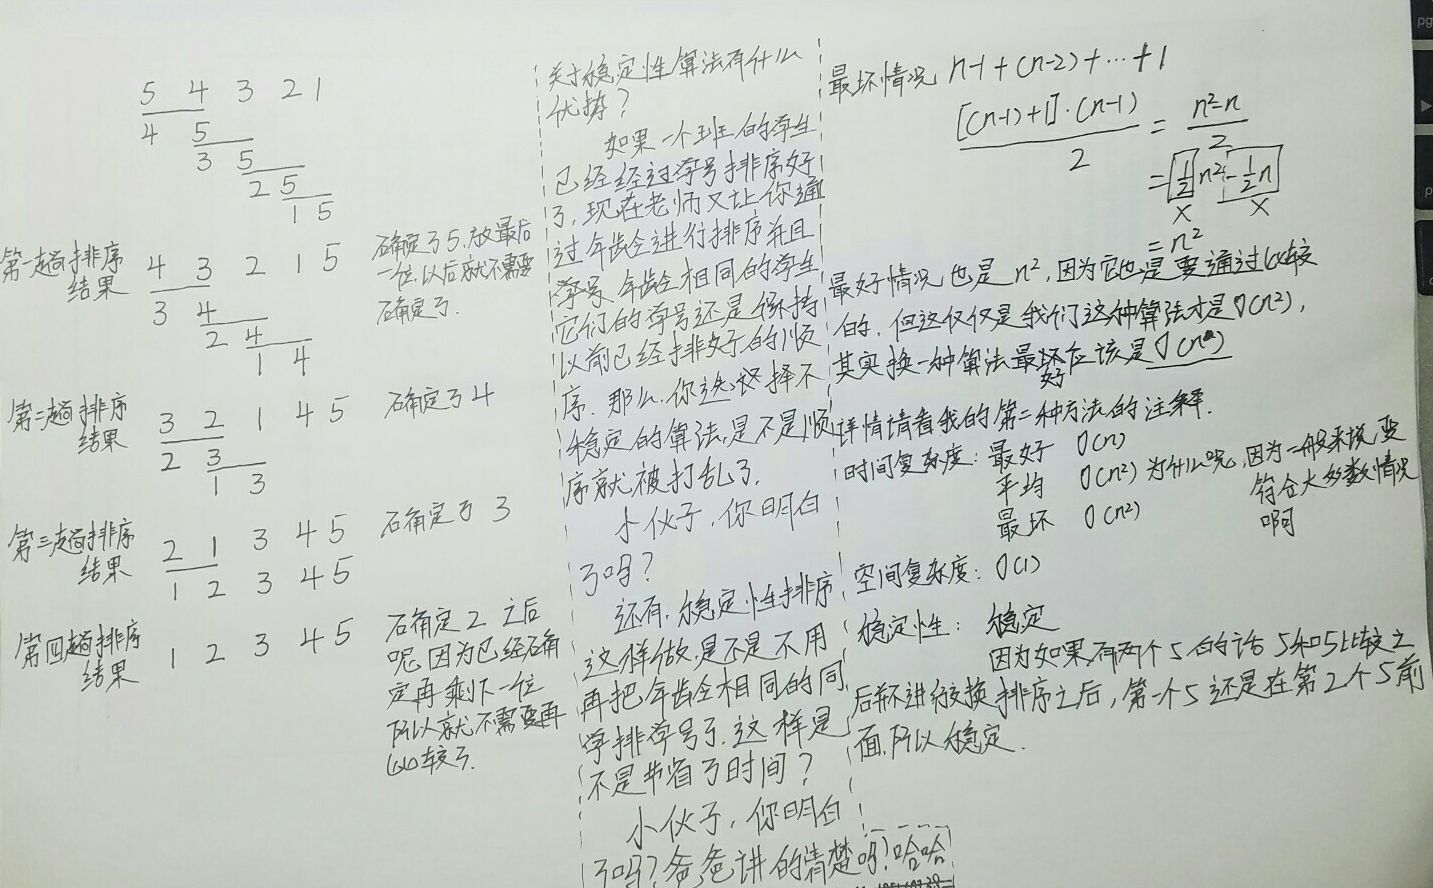 5 4 3 2 1
4 5
3 5
2 5
1 5
第一趟排序
结果
4 3 2 1 5
确定了5.放最后
一位.以后就不需要
确定了.
3 4
2 4
1 4
第二趟排序
结果
3 2 1 4 5
确定了4
2 3
1 3
第三趟排序
结果
2 1 3 4 5
确定了 3
1 2 3 4 5
第四趟排序
结果
1 2 3 4 5
确定2 之后
呢.因为已经确
定再剩下一位
所以就不需要再
比较了.
关于稳定性算法有什么
优势?
如果一个班的学生
已经经过学号排序好
了,现在老师又让你通
过年龄进行排序并且
学号年龄相同的学生
它们的学号还是保持
以前已经排好的顺
序.那么,你选择不
稳定的算法,是不是顺
序就被打乱了.
小伙子,你明白
了吗?
还有,稳定性排序
这样做,是不是不用
再把年龄相同的同
学排学号了.这样是
不是节省了时间?
小伙子,你明白
了吗?爸爸讲的清楚吗?哈哈
最坏情况 n-1+(n-2)+…+1
[(n-1)+1]·(n-1)
2
= n²-n
2
= 1/2 n² - 1/2 n
x x
= n²
最好情况 也是n²,因为它也是要通过比较
的.但这仅仅是我们这种算法才是O(n²),
其实换一种算法最好应该是O(n)
详情请看我的第二种方法的注释.
时间复杂度: 最好 O(n)
平均 O(n²) 为什么呢,因为一般来该,要
符合大多数情况
啊
最坏 O(n²)
空间复杂度: O(1)
稳定性: 稳定
因为如果有两个5的话 5和5比较之
后并不进行交换排序之后,第一个5还是在第2个5前
面.所以稳定.